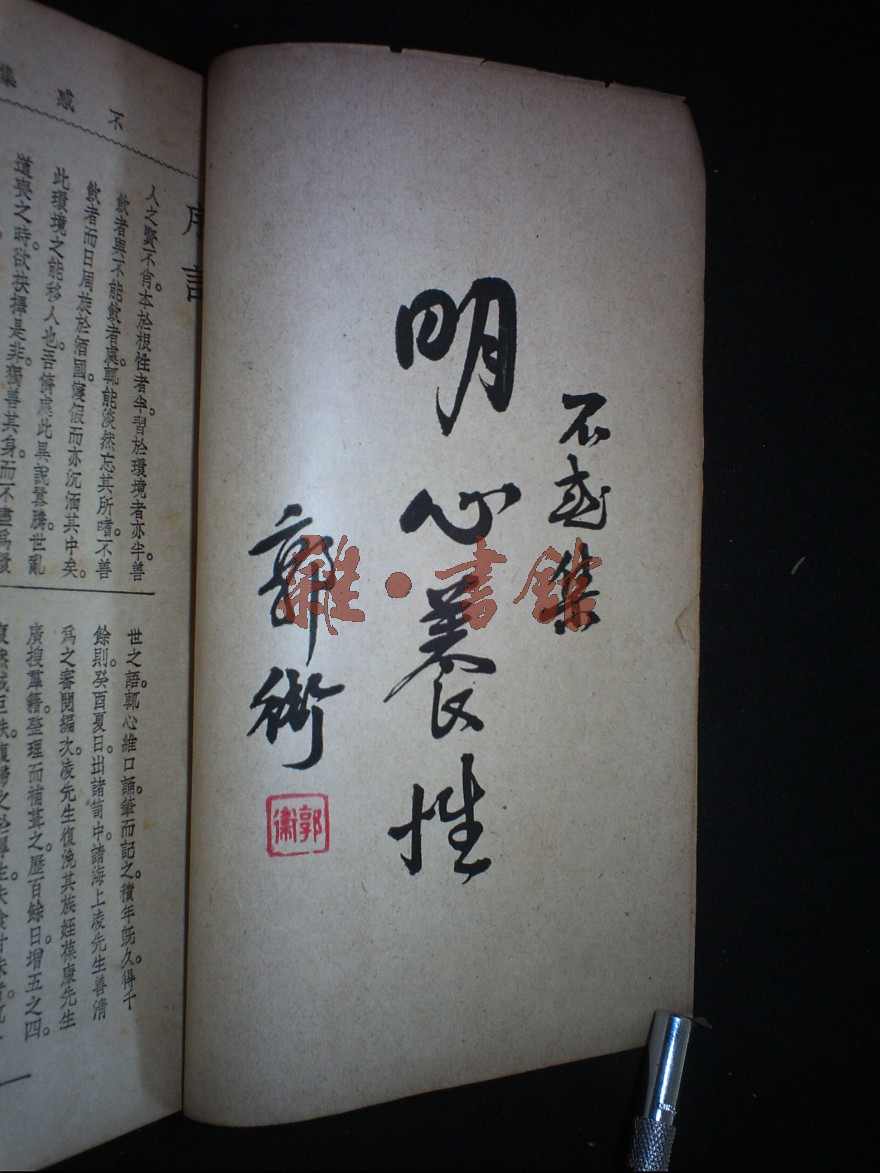 不惑集
明心養性
郭衛
郭衛
雜·書館
不惑集
序言
人之賢不肖本於根性者半習於環境者亦半善
飲者與不能飲者處輒能淡然忘其所嗜不善
飲者而日周旋於酒國寖假而亦沉湎其中矣
此環境之能移人也吾儕處此異說囂騰世亂
道喪之時欲抉擇是非獨善其身而不盡為環
世之語輒心維口誦筆而記之積年既久得千
餘則癸酉夏日出諸笥中請海上凌先生善清
為之審閱編次凌先生復浼其族姪葆康先生
廣搜羣籍整理而補葺之歷百餘日增五之四